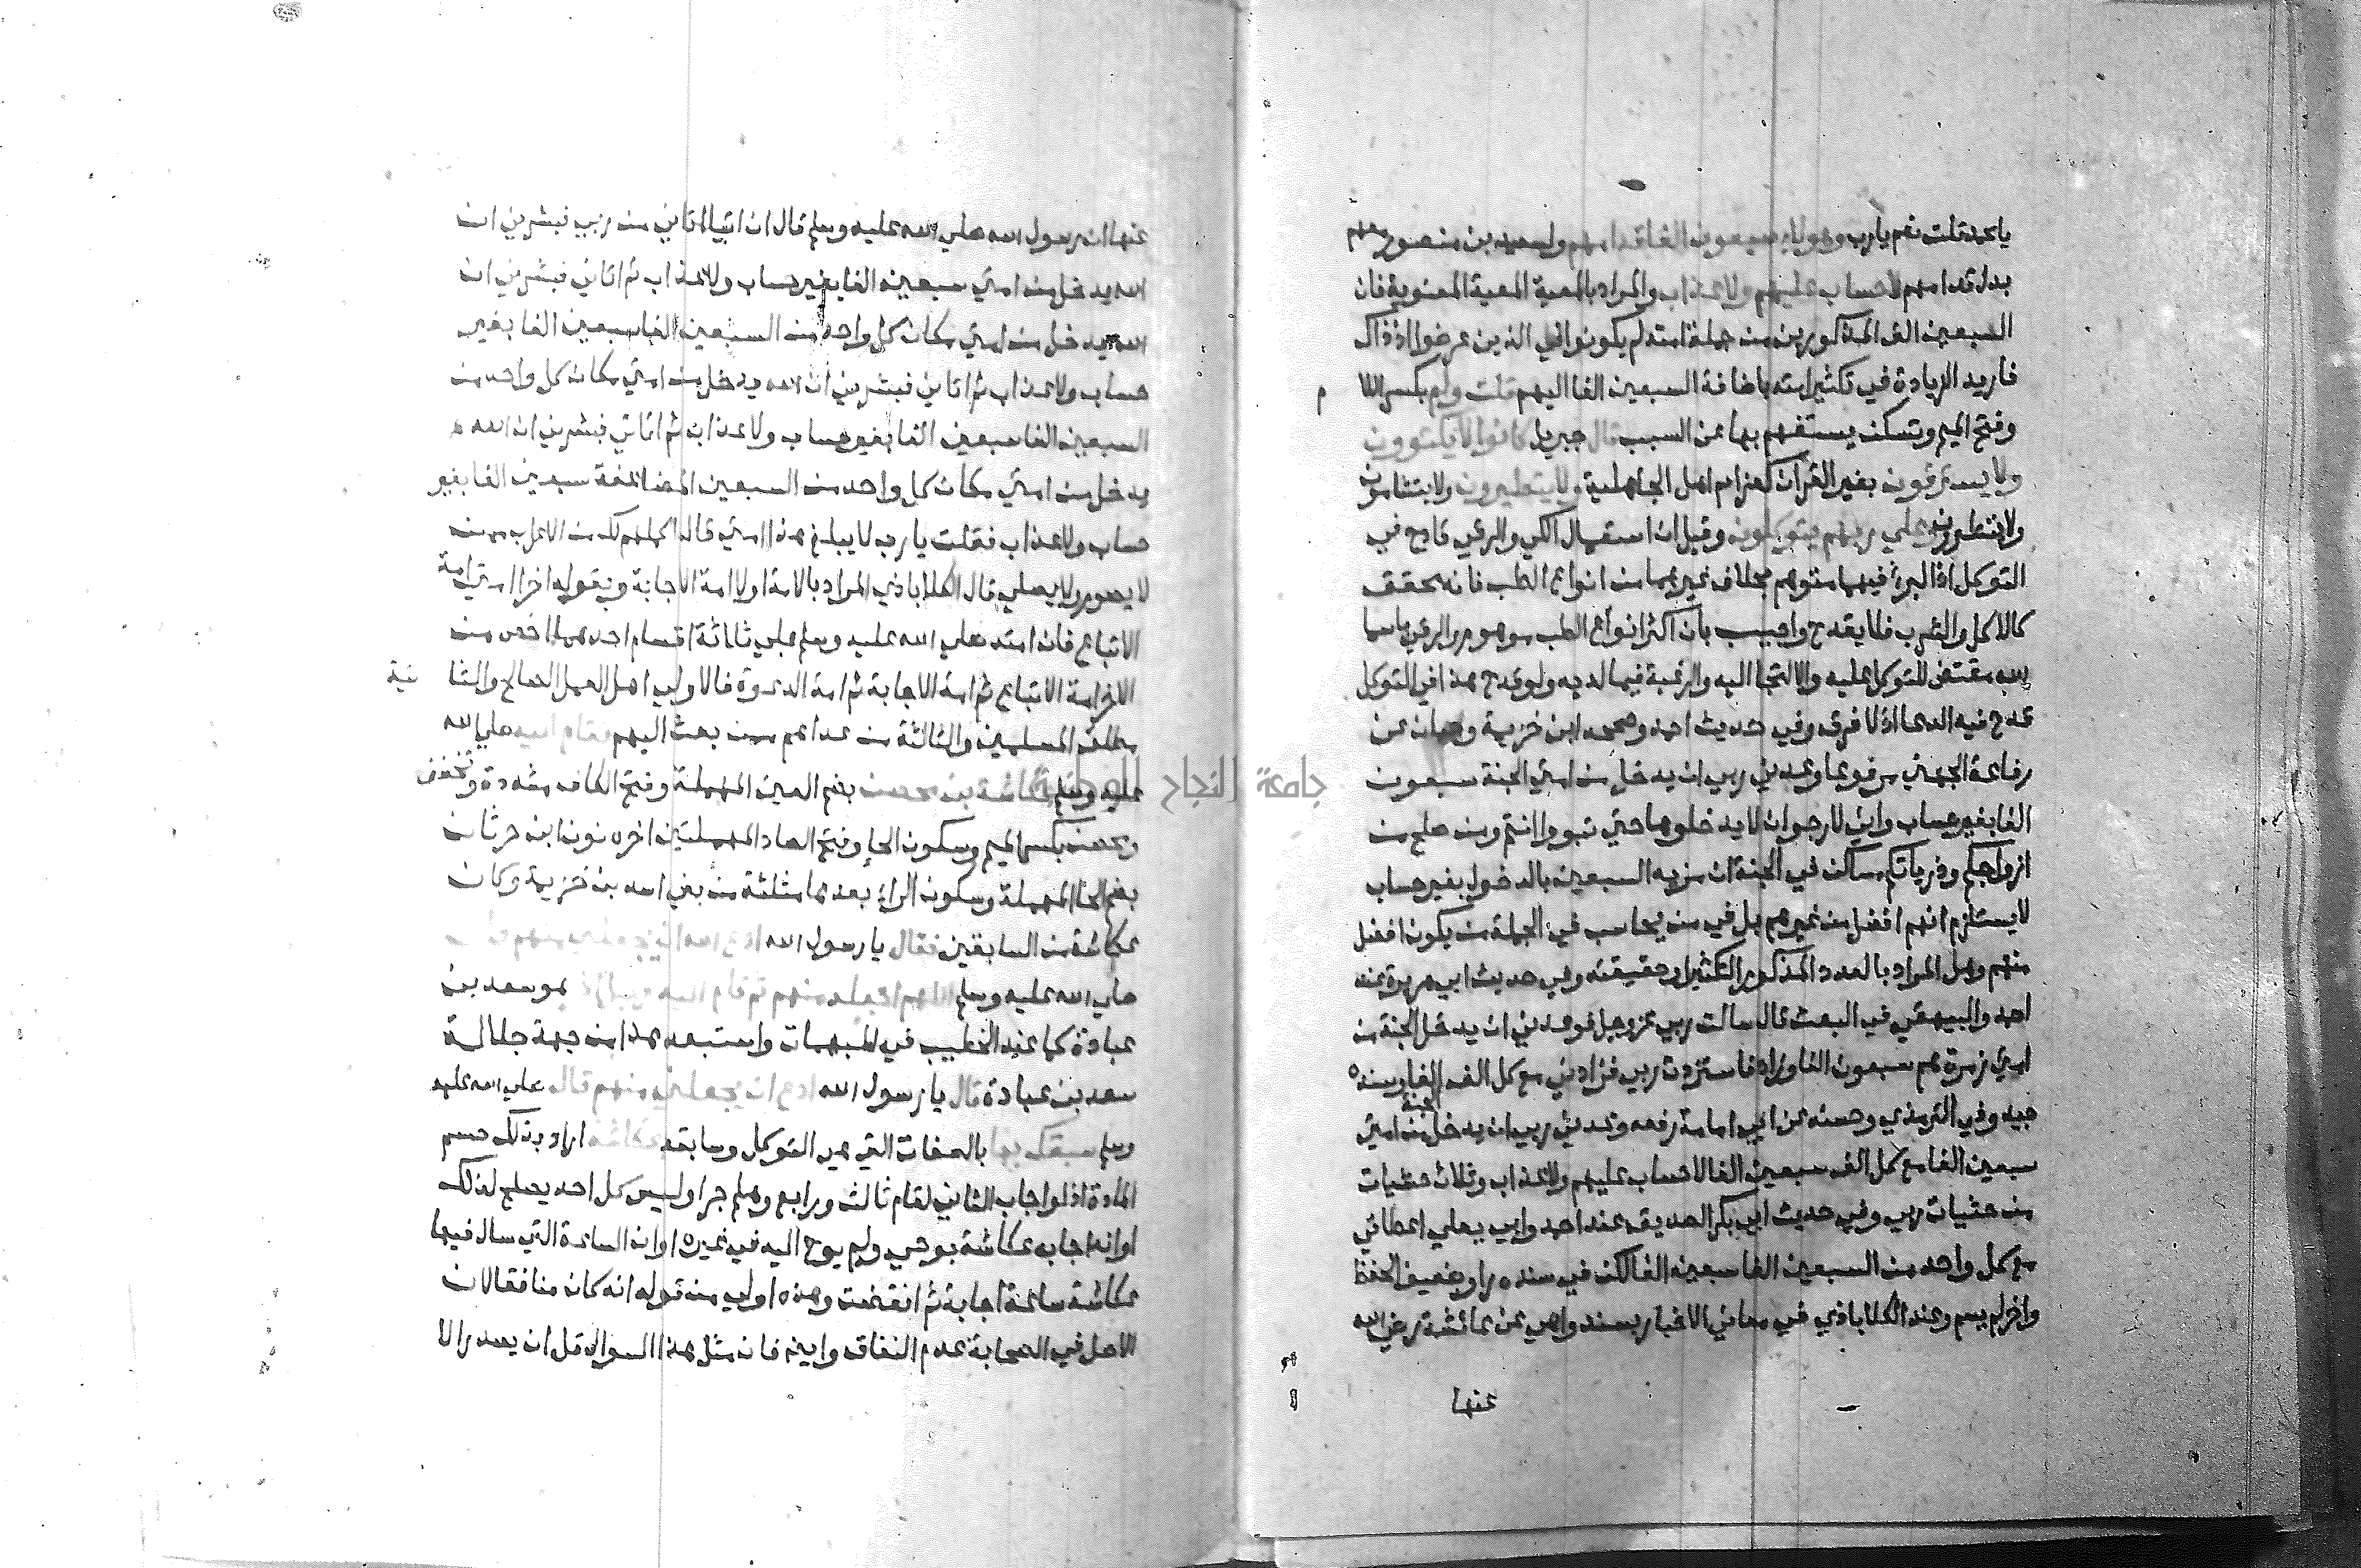 يا محمد قلت نعم يارب وهولاء سبعون الفا قدامهم ولسعيد بن منصور معهم
بدل قدامهم لا حساب عليهم ولا عذاب والمراد بالمعية المعية المعنوية فان
السبعين الف المذكورين من جملة امته لم يكونوا في الذين عرضوا اذ ذاك
فاريد الزيادة في تكثير امته باضافة السبعين الفا اليهم قلت ولم بكسر اللا م
وفتح الميم وتسكن يستفهم بها عن السبب قال جبريل كانوا لا يكتوون
ولا يسترقون بغير القران كعزايم اهل الجاهلية ولا يتطيرون ولا يتشامون
وعلي ربهم يتوكلون وقيل ان استعمال الكي والرقي قادح في
التوكل اذ البرء فيهما متوهم بخلاف غيرهما من انواع الطب فانه محقق
كالاكل والشرب فلا يقدح واجيب بان اكثر انواع الطب موهوم والرقي باسما
الله مقتض للتوكل عليه والالتجا اليه والرغبة فيما لديه ولو قدح هذا في التوكل
قدح فيه الدعا اذ لا فرق وفي حديث احمد وصححه ابن خزيمة وحبان عن
رفاعة الجهني مرفوعا وعدني ربي ان يدخل من امتي الجنة سبعون
الفا بغير حساب واني لارجوا ان لا يدخلوها حتي تبووا انتم ومن صلح من
ازواجكم وذرياتكم مساكن في الجنة ان مزية السبعين بالدخول بغير حساب
لا يستلزم انهم افضل من غيرهم بل في من يحاسب في الجملة من يكون افضل
منهم وهل المراد بالعدد المذكور التكثير او حقيقته وفي حديث ابي هريرة عند
احمد والبيهقي في البعث قال سالت ربي عز وجل فوعدني ان يدخل الجنة من
امتي زمرة هم سبعون الفا وزاد فاستزدت ربي فزادني مع كل الف الفا وسنده
جيد وفي الترمذي وحسنه عن ابي امامة رفعه وعدني ربي ان يدخل الجنة من امتي
سبعين الفا مع كل الف سبعين الفا لا حساب عليهم ولا عذاب وثلاث حثيات
من حثيات ربي وفي حديث ابي بكر الصديق عند احمد وابي يعلي اعطاني
مع كل واحد من السبعين الفا سبعين الفا لكن في سنده راو ضعيف الحفظ
واخر لم يسم وعند الكلاباذي في معاني الاخبار بسند واهي عن عائشة رضي الله
عنها
عنها ان رسول الله صلي الله عليه وسلم قال ان اتيا اتاني من ربي فبشرني ان
الله يدخل من امتي سبعين الفا بغير حساب ولا عذاب ثم اتاني فبشرني ان
الله يدخل من امتي مكان كل واحد من السبعين الفا سبعين الفا بغير
حساب ولا عذاب ثم اتاني فبشرني ان الله يدخل من امتي مكان كل واحد من
السبعين الفا سبعين الفا بغير حساب ولا عذاب ثم اتاني فبشرني ان الله
يدخل من امتي مكان كل واحد من السبعين المضاعفة سبعين الفا بغير
حساب ولا عذاب فقلت يا رب لا يبلغ هذا امتي قال اكملهم لك من الاعراب ممن
لا يصوم ولا يصلي قال الكلاباذي المراد بالامة اولا امة الاجابة وبقوله اخرا امتي امة
الاتباع فان امته صلي الله عليه وسلم علي ثلاثة اقسام احدهما اخص من
الاخر امة الاتباع ثم امة الاجابة ثم امة الدعوة فالاولي اهل العمل الصالح والثا نية
مطلق المسلمين والثالثة من عداهم ممن بعث اليهم فقام اليه صلي الله
عليه وسلم عكاشة بن محصن بضم العين المهملة وفتح الكاف مشددة وتخفف
ومحصن بكسر الميم وسكون الحا وفتح الصاد المهملتين اخره نون ابن حرثان
بضم الحا المهملة وسكون الراء بعدها مثلثة من بني اسد بن خزيمة وكان
عكاشة من السابقين فقال يا رسول الله ادع الله ان يجعلني منهم
صلي الله عليه وسلم اللهم اجعله منهم ثم قام اليه رجل هو سعد بن
عبادة كما عند الخطيب في المبهمات واستبعد هذا من جهة جلالة
سعد بن عبادة قال يا رسول الله ادع ان يجعلني منهم قال صلي الله عليه
وسلم سبقك بها بالصفات التي هي التوكل وسابقه عكاشة اراد بذلك حسم
المادة اذ لو اجاب الثاني لقام ثالث ورابع وهلم جرا وليس كل احد يصلح لذلك
او انه اجاب عكاشة بوحي ولم يوح اليه في غيره او ان الساعة التي سال فيها
عكاشة ساعة اجابة ثم انقضت وهذه اولي من قوله انه كان منافقا لان
الاصل في الصحابة عدم النفاق وايضا فان مثل هذا السوال قل ان يصدر الا
جامعة النجاح الوطنية